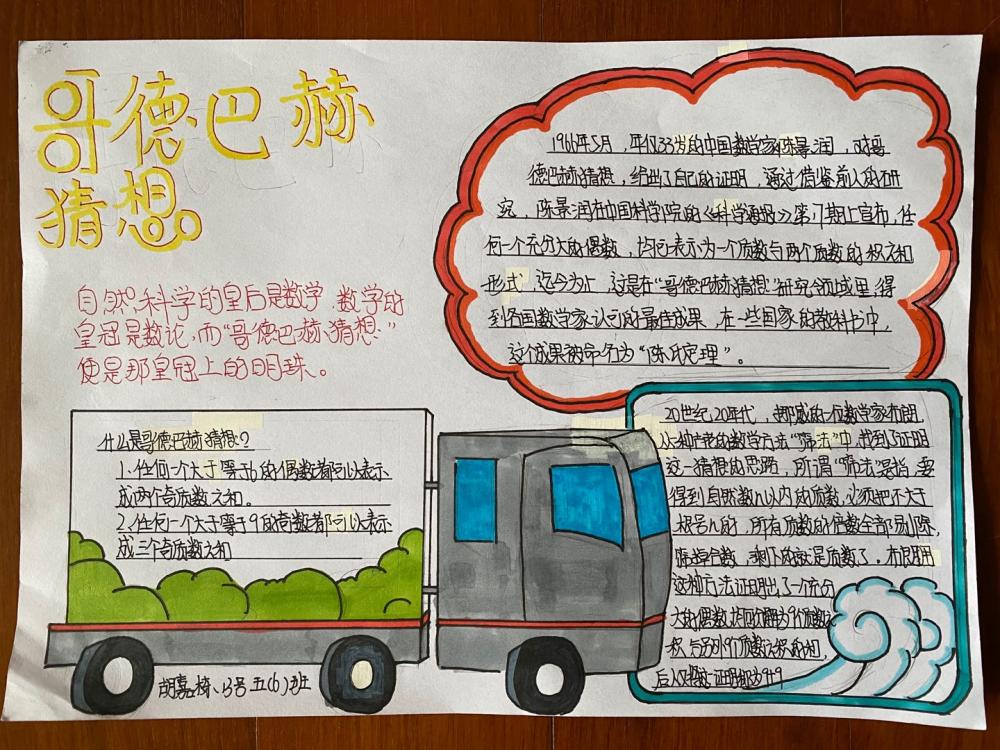 哥德巴赫
猜想。
自然科学的皇后是数学,数学的
皇冠是数论,而“哥德巴赫猜想”
便是那皇冠上的明珠。
1966年5月,年仅33岁的中国数学家陈景润,对哥
德巴赫猜想,给出了自己的证明,通过借鉴前人的研
究,陈景润在中国科学院的《科学通报》第17期上宣布,任
何一个充分大的偶数,均可表示为一个质数与两个质数的积之和
形式,迄今为止,这是在“哥德巴赫猜想”研究领域里,得
到各国数学家认可的最佳成果,在一些国家的教科书中,
这个成果被命名为“陈氏定理”。
什么是哥德巴赫猜想?
1.任何一个大于等于6的偶数都可以表示
成两个奇质数之和。
2.任何一个大于等于9的奇数都可以表示
成三个奇质数之和
20世纪20年代,挪威的一位数学家布朗
从一种古老的数学方法“筛法”中,找到了证明
这一猜想的思路,所谓“筛法”是指,要
得到自然数n以内的质数,必须把不大于
根号n的,所有质数的倍数全部剔除,
筛掉合数,剩下的就是质数了,布朗用
这种方法证明出了一个充分
大的偶数,可分解为9个质数之
积与另外9个质数之积的和,
后人又将这一证明称为9+9
胡嘉椅、13号 五(6)班